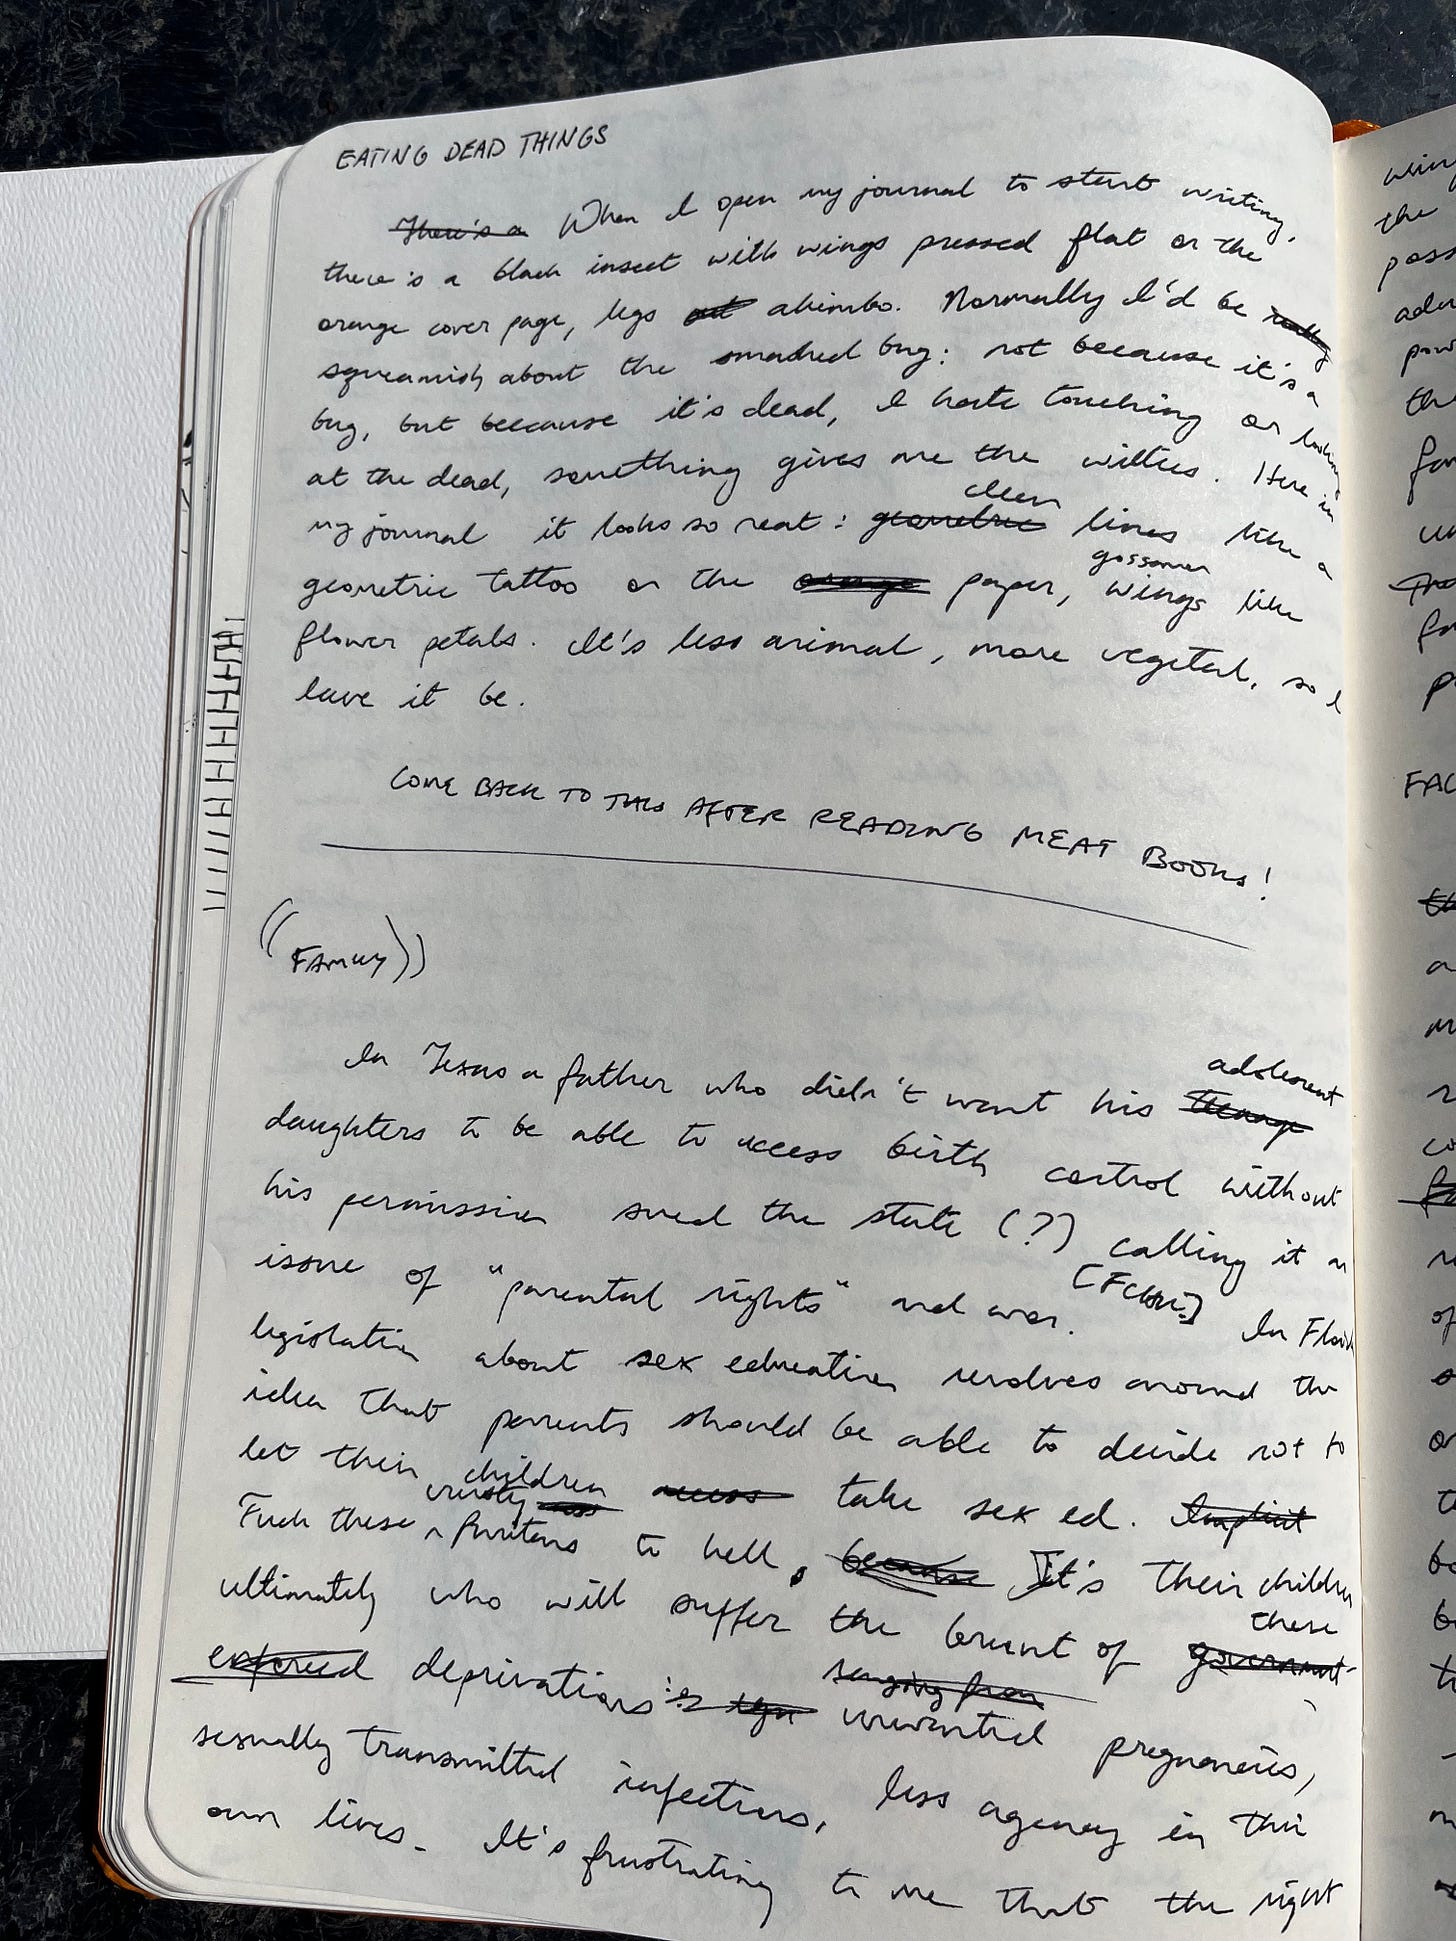 EATING DEAD THINGS
There's a When I open my journal to start writing,
there's a black insect with wings pressed flat on the
orange cover page, legs out akimbo. Normally I'd be really
squeamish about the smashed bug: not because it's a
bug, but because it's dead, I hate touching or looking
at the dead, something gives me the willies. Here in
my journal it looks so neat: geometric clean lines like a
geometric tattoo on the orange paper, gossamer wings like
flower petals. It's less animal, more vegetal, so I
leave it be.
COME BACK TO THIS AFTER READING MEAT BOOKS!
((FAMILY))
In Texas a father who didn't want his teenage adolescent
daughters to be able to access birth control without
his permission sued the state (?) calling it an
issue of "parental rights" and won. In Florida
legislation about sex education revolves around the
idea that parents should be able to decide not to
let their children access take sex ed. Implicit
Fuck these crusty ass Puritans to hell, because It's their children
ultimately who will suffer the brunt of government these
enforced deprivations: unwanted pregnancies,
sexually transmitted infections, less agency in their
own lives. It's frustrating to me that the right
wing
the
FAC